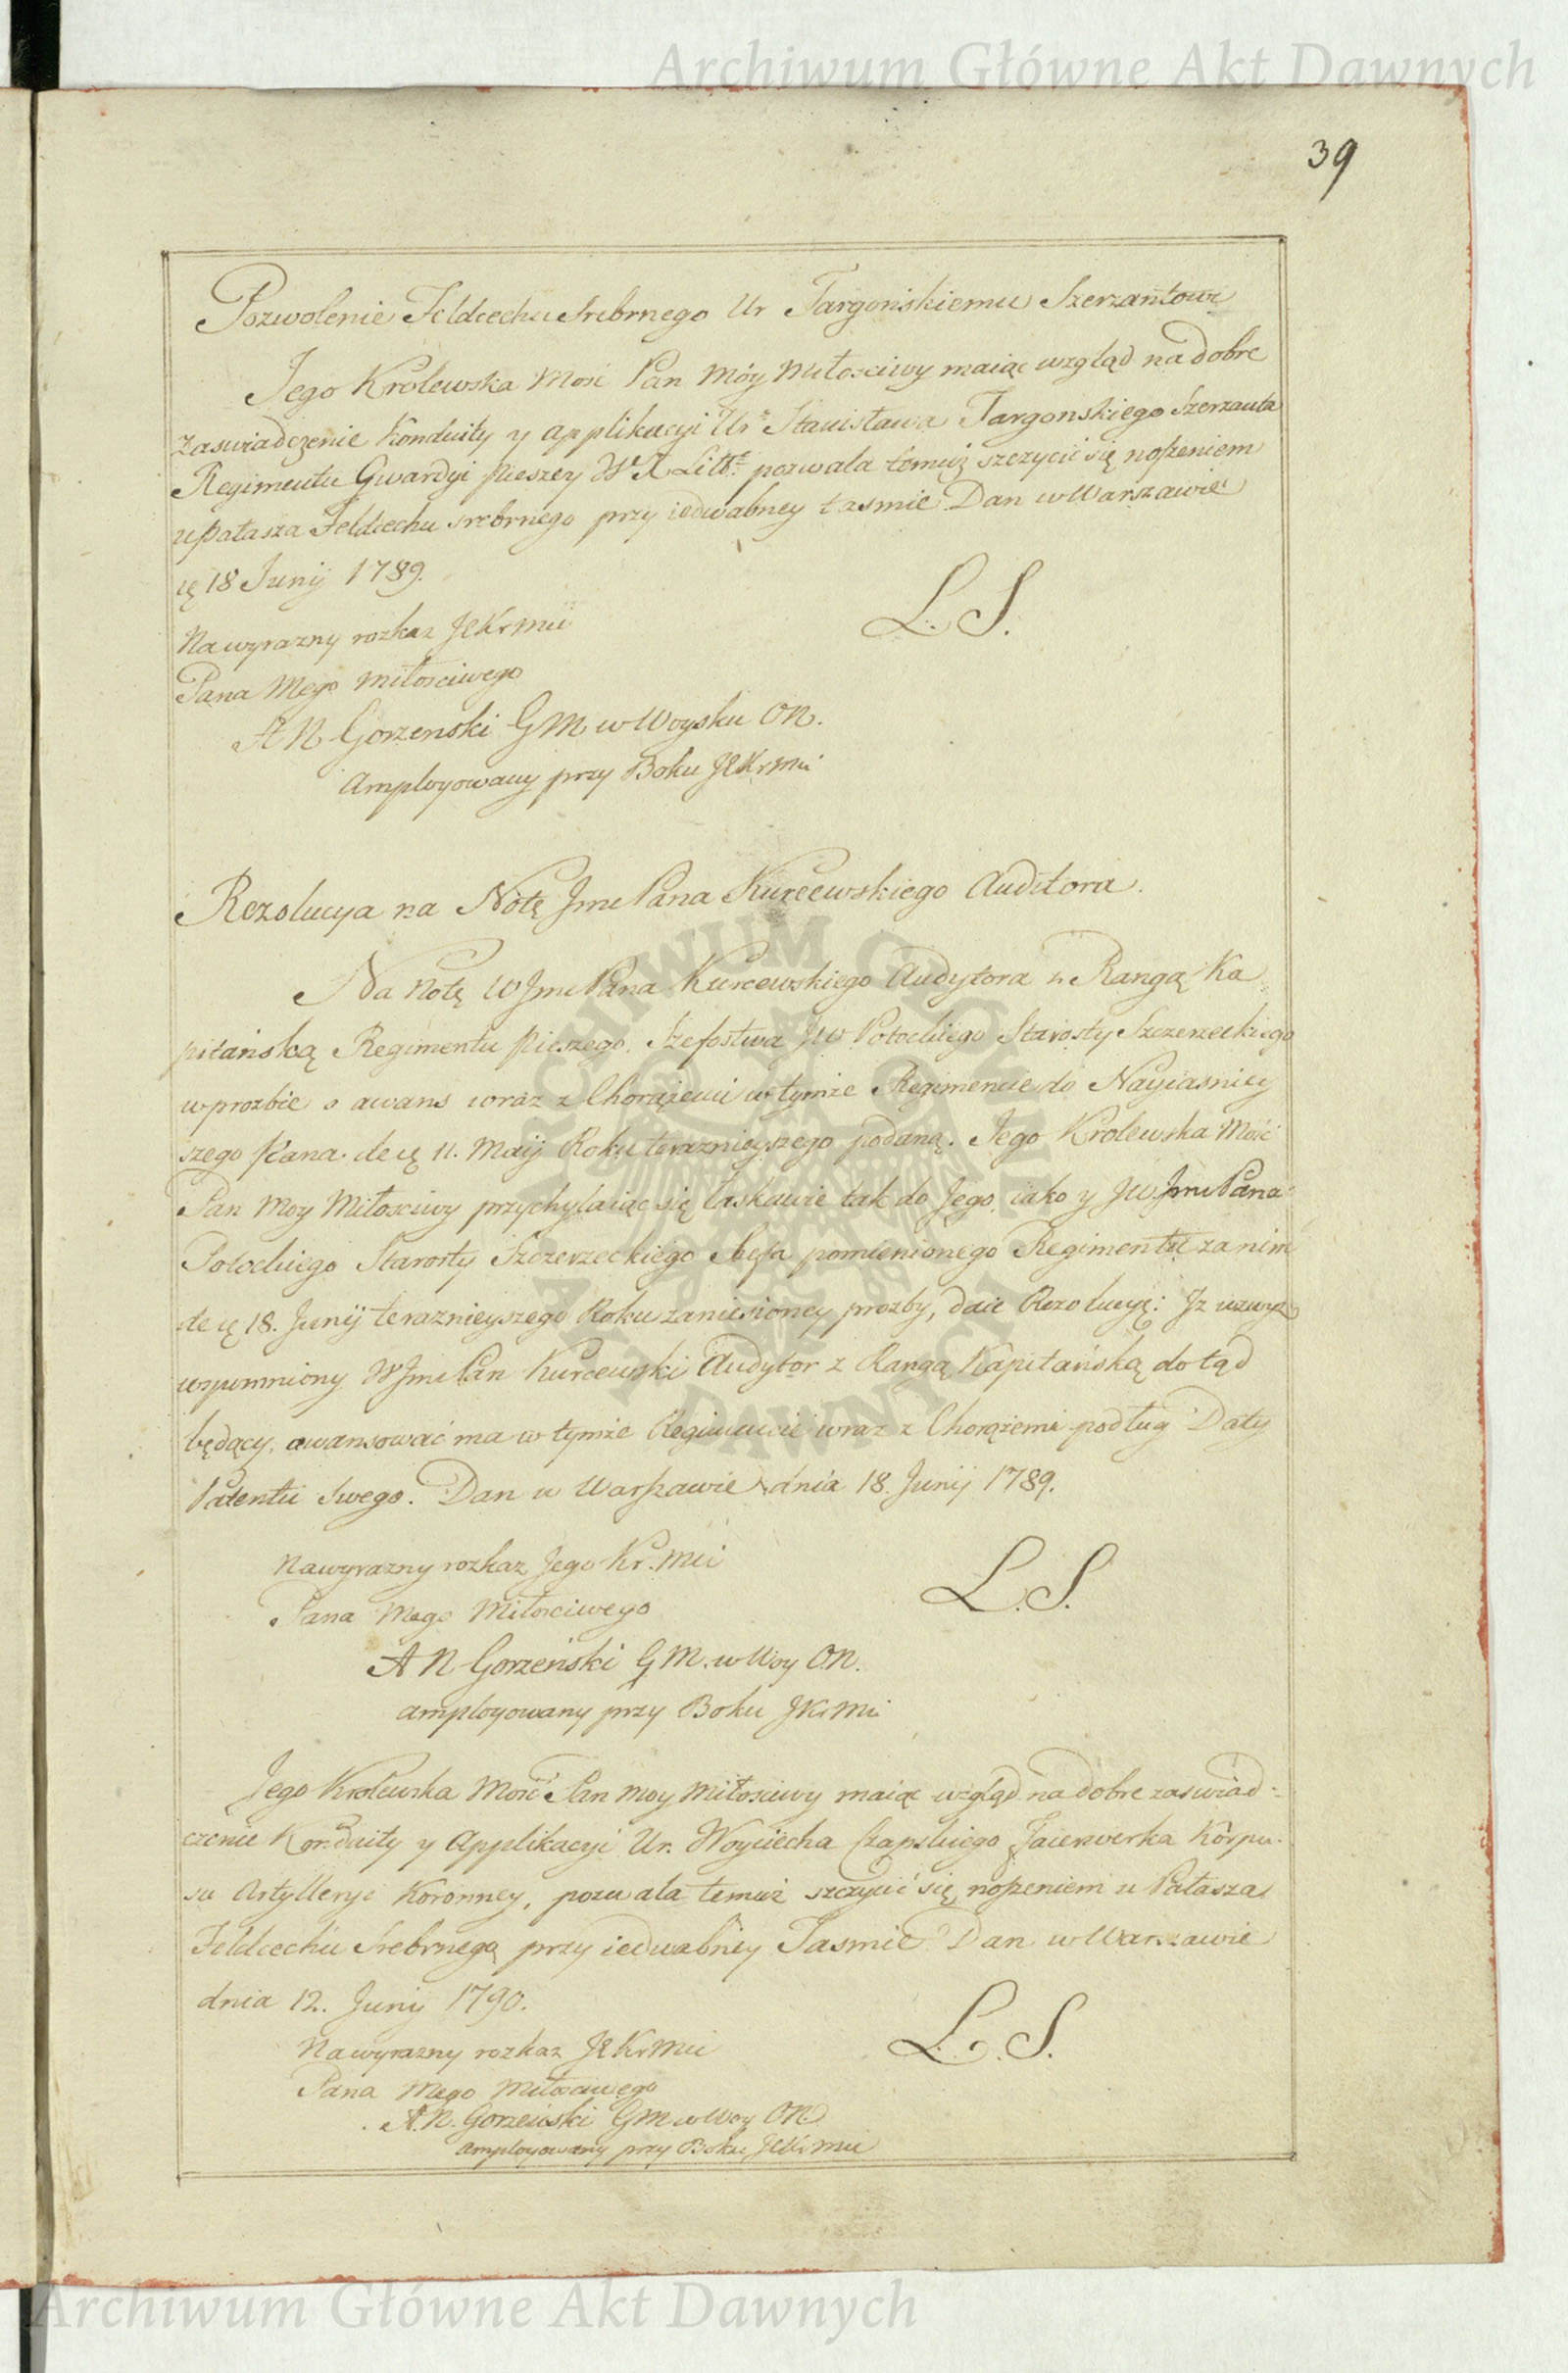 Archiwum Główne Akt Dawnych
39
Pozwolenie Feldcechu Srebrnego Ur Targońskiemu Szerzantowi
Jego Krolewska Mość Pan Móy Miłosciwy maiąc wzgląd na dobre
zaswiadczenie Konduity y applikacyi Ur. Stanisława Targonskiego Szerzanta
Regimentu Gwardyi pieszey W X Litt. pozwala temuż szczycić się noszeniem
u pałasza Feldcechu srebrnego przy iedwabney tasmie Dan w Warszawie
18 Junij 1789.
Na wyrazny rozkaz JEKrMci
Pana Mego miłosciwego
L. S.
A N Gorzenski G M w Woysku ON.
Amployowany przy Boku JEKrMci
Rezolucya na Notę Jmc Pana Kurcewskiego Auditora.
Na Notę W Jmc Pana Kurcewskiego Audytora z Rangą Ka
pitańską Regimentu pieszego Szefostwa JW Potockiego Starosty Szczerzeckiego
w prozbie o awans wraz z Chorążemi w tymże Regimencie do Nayiasniey
szego Pana de 11. Maij Roku teraznieyszego podaną. Jego Krolewska Mość
Pan Moy Miłosciwy przychylaiąc się łaskawie tak do Jego, iako y JW Jmc Pana
Potockiego Starosty Szczerzeckiego Szefa pomienionego Regimentu za nim
de 18. Junij teraznieyszego Roku zaniesioney prozby, daie Rezolucyę: Jz wzwyż
wspomniony W Jmc Pan Kurcewski Audytor z Rangą Kapitańską do tąd
będący, awansować ma w tymże Regimencie wraz z Chorążemi podług Daty
Patentu swego. Dan w Warszawie dnia 18. Junij 1789.
Na wyrazny rozkaz Jego Kr. Mci
Pana Mego Miłosciwego
L. S.
A N Gorzeński G M. w Woy O.N.
amployowany przy Boku JKrMci
Jego Krolewska Mość Pan Moy Miłosciwy maiąc wzgląd na dobre zaswiad=
czenie Konduity y Applikacyi Ur. Woyciecha Czapskiego Faierwerka Korpu=
su Artylleryi Koronney, pozwala temuż szczycić się noszeniem u Pałasza
Feldcechu Srebrnego przy iedwabney Tasmie Dan w Warszawie
dnia 12. Junij 1790.
Na wyrazny rozkaz JEKrMci
L. S.
Pana Mego Miłosciwego
A. N. Gorzeński GM w Woy ON
amployowany przy Boku JEKrMci
Archiwum Główne Akt Dawnych